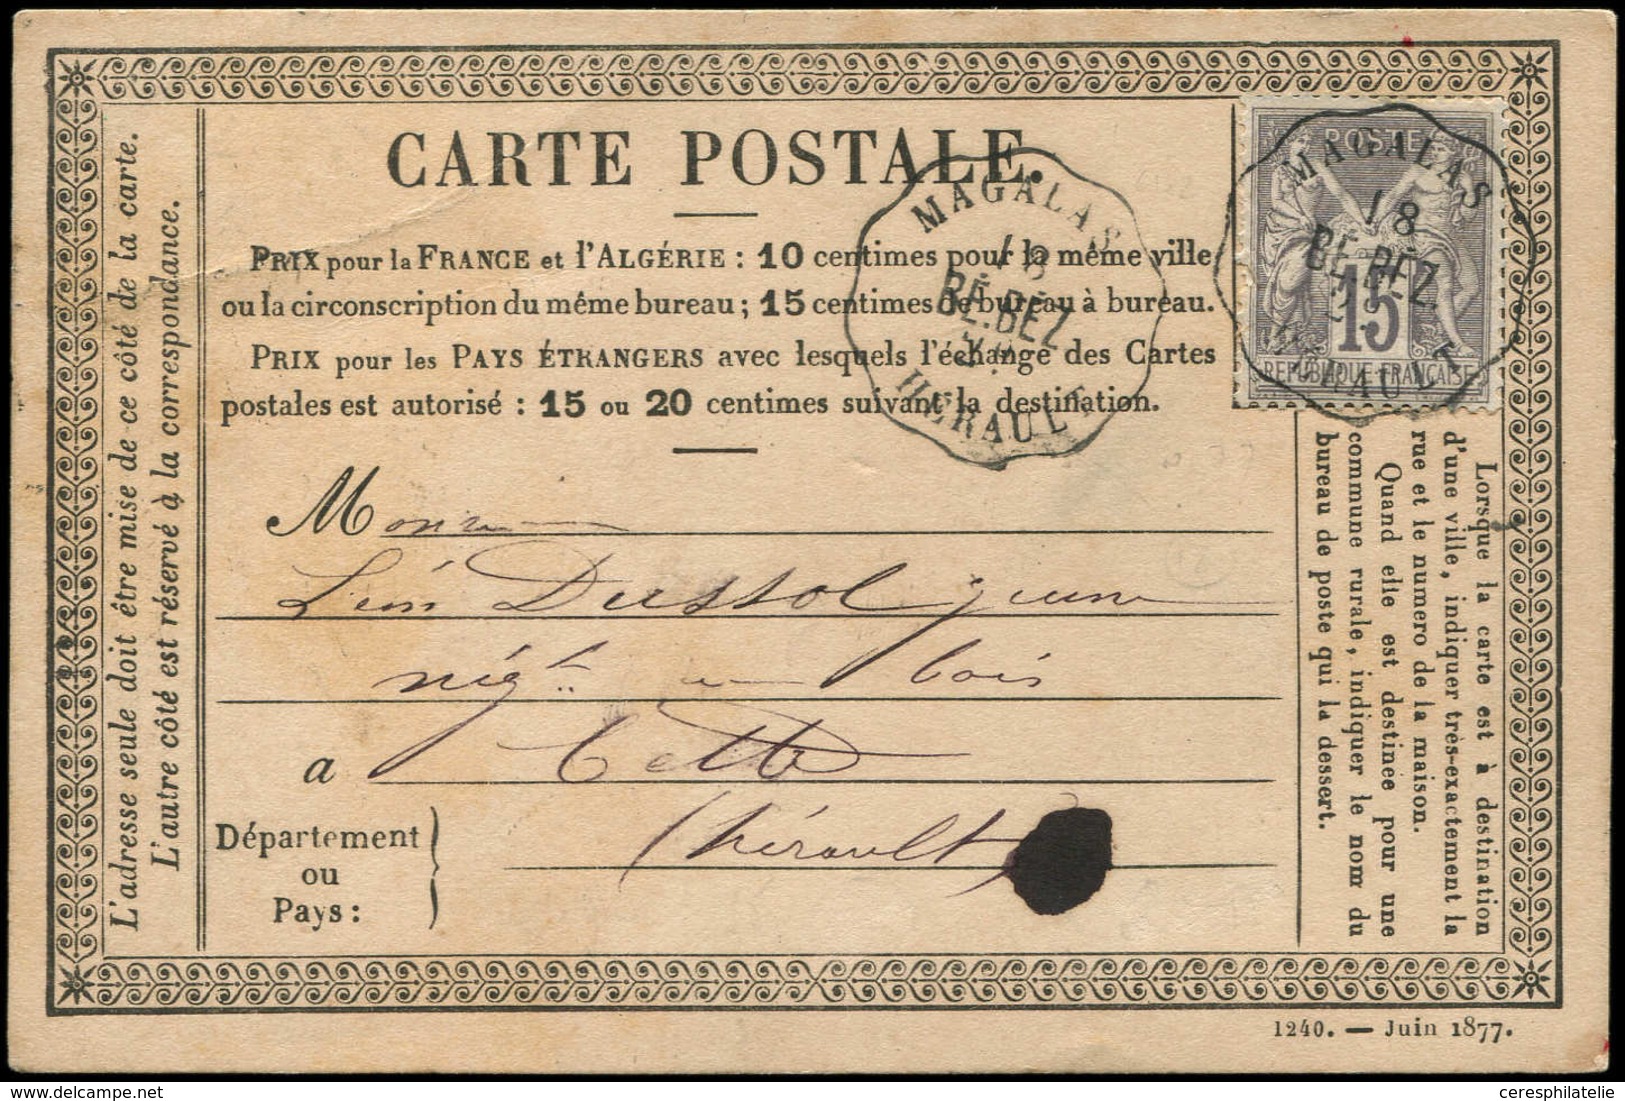 CARTE POSTALE.
PRIX pour la FRANCE et l'ALGÉRIE : 10 centimes pour la même ville
ou la circonscription du même bureau ; 15 centimes de bureau à bureau.
PRIX pour les PAYS ÉTRANGERS avec lesquels l'échange des Cartes
postales est autorisé : 15 ou 20 centimes suivant la destination.
MAGALAS
18
BÉ.BEZ
HÉRAULT
POSTE
15
REPUBLIQUE FRANÇAISE
MAGALAS
18
BÉ.BEZ.
HÉRAULT
L'adresse seule doit être mise de ce côté de la carte.
L'autre côté est réservé à la correspondance.
M
Léon Dussol jeune
négt en bois
a Cette
Département
ou
Pays :
(hérault
Lorsque la carte est à destination
d'une ville, indiquer très-exactement la
rue et le numero de la maison.
Quand elle est destinée pour une
commune rurale, indiquer le nom du
bureau de poste qui la dessert.
1240. — Juin 1877.
ceresphilatelie